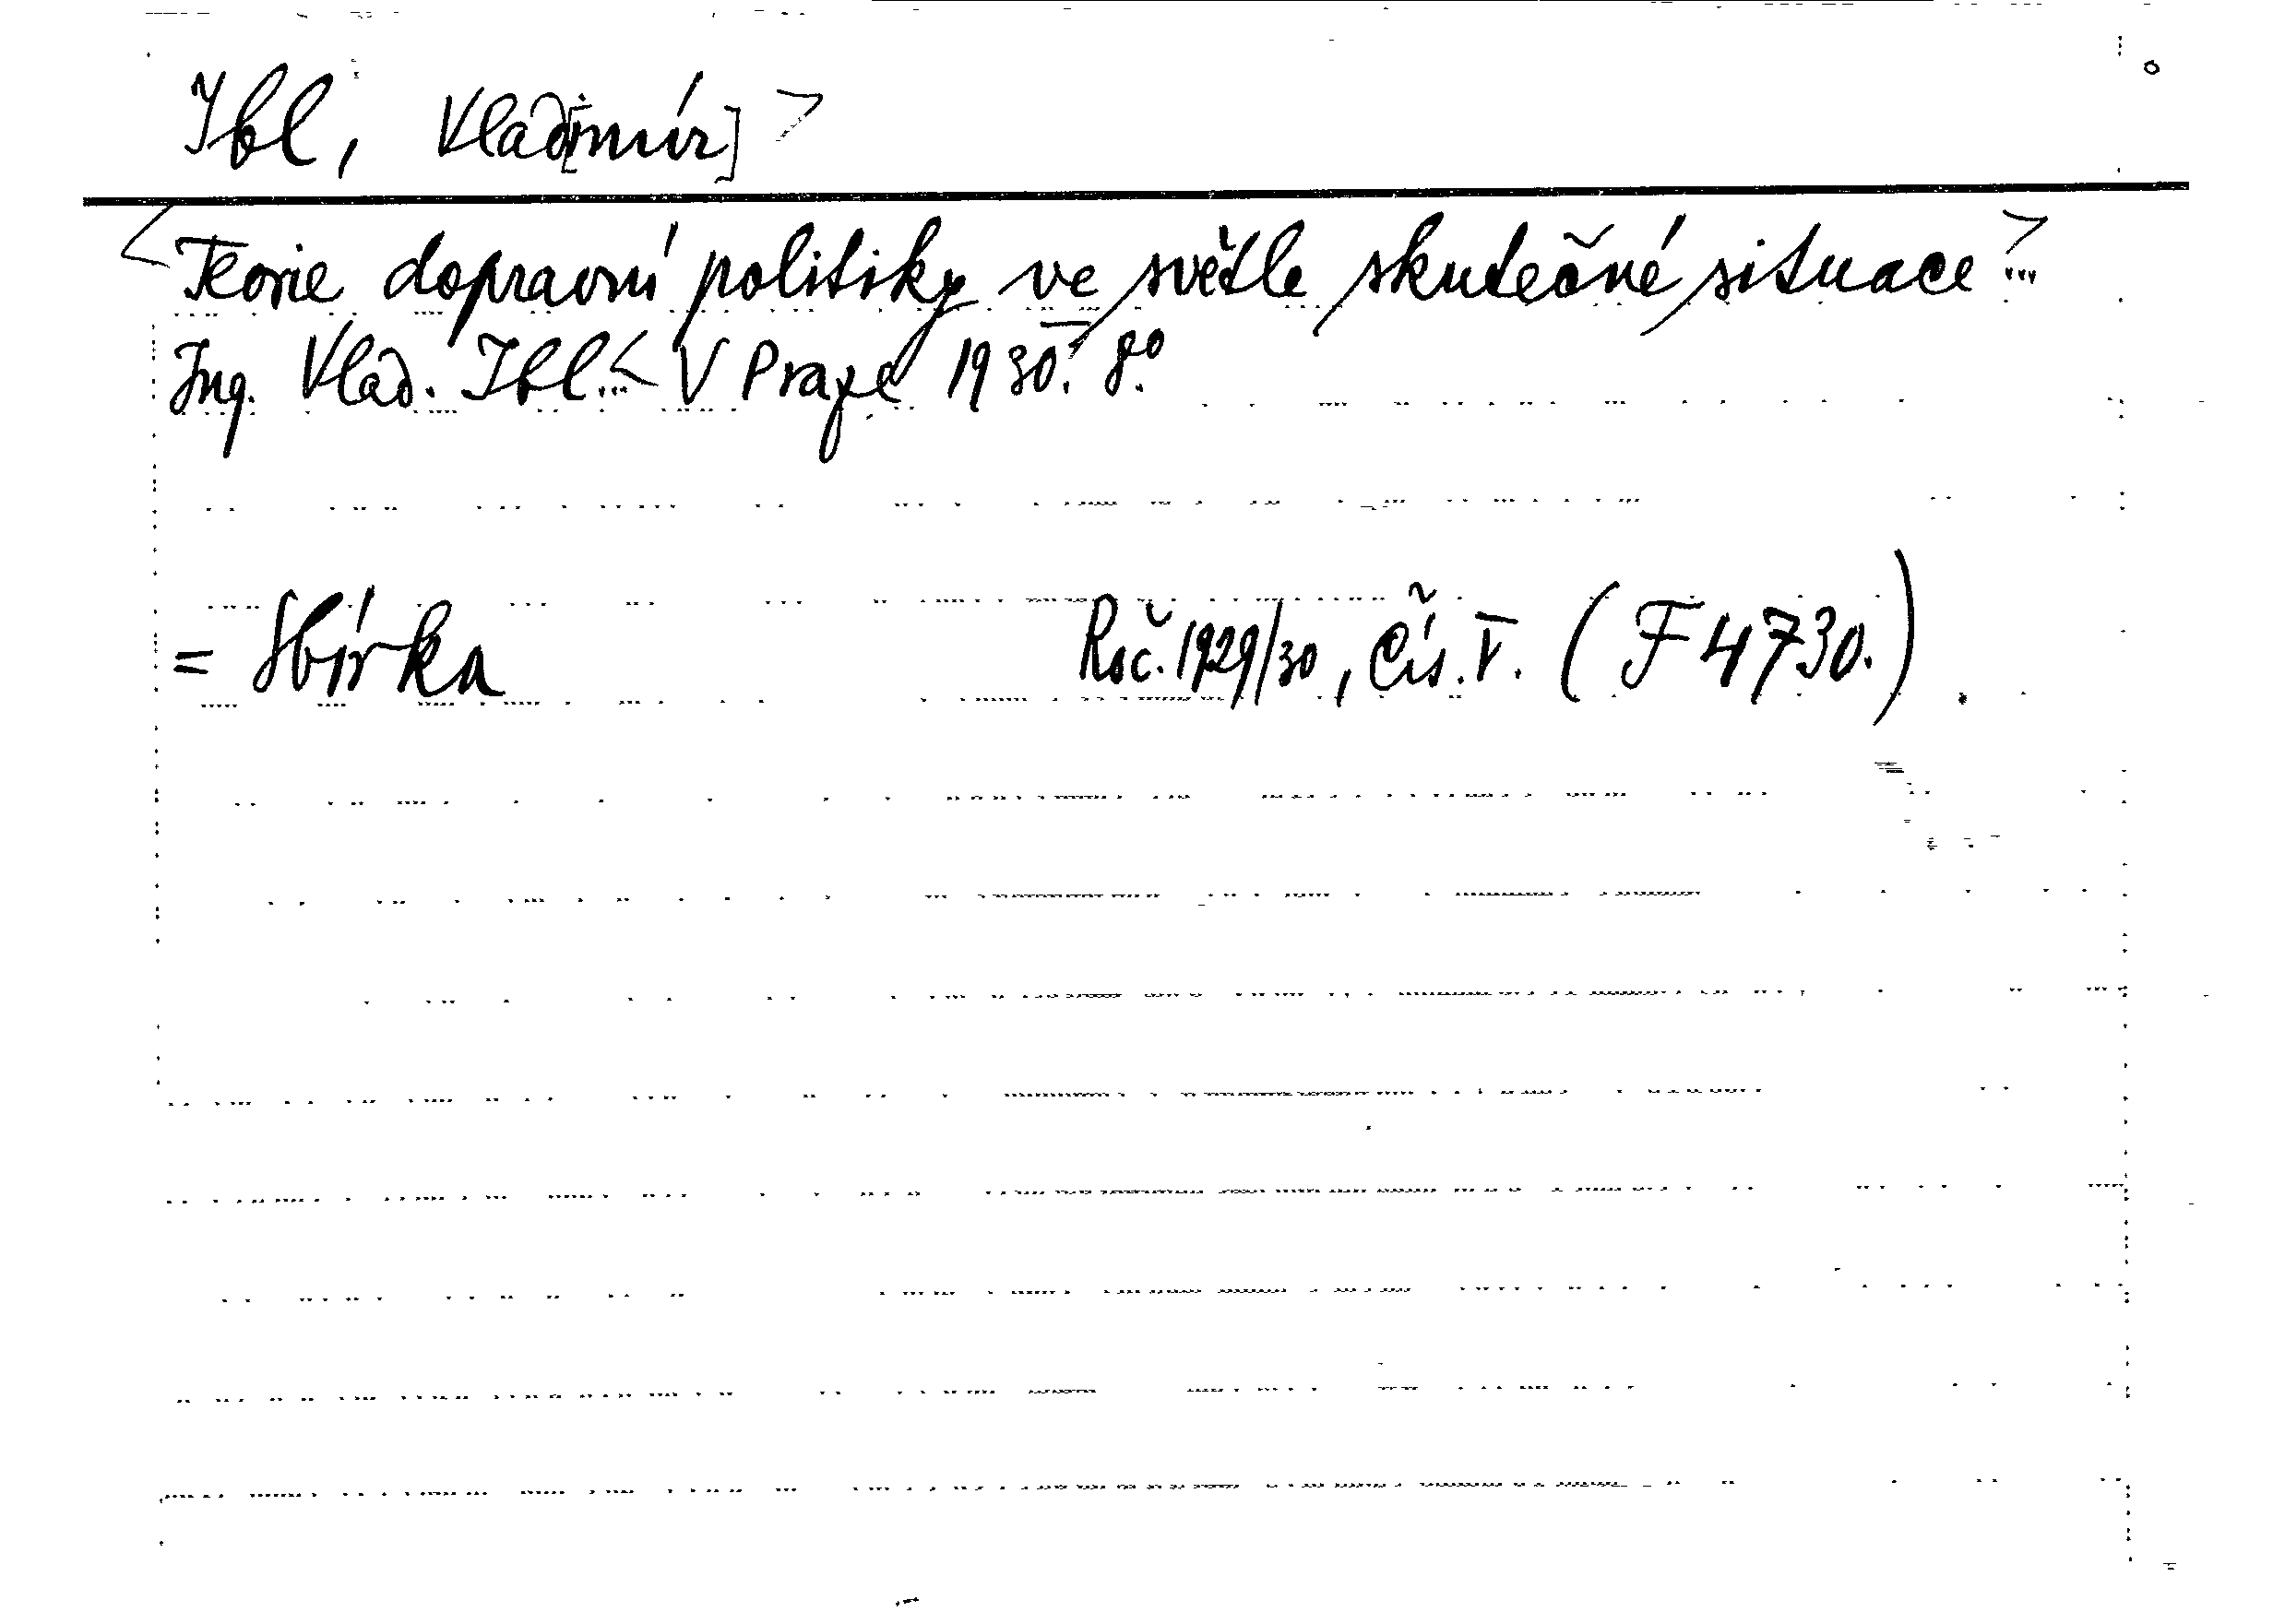 Ibl, Vlad[imír] >
< Teorie dopravní politiky ve světle skutečné situace > ...
Ing. Vlad. Ibl ... < V Praze 1930. 8.º
= Sbírka Roč. 1929/30, Čís. V. (F 4730.) .